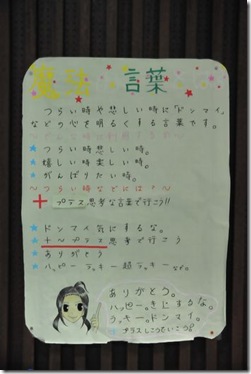 魔法 言葉
つらい時や悲しい時に「ドンマイ」
などの心を明るくする言葉です。
★つらい時悲しい時。
★嬉しい時楽しい時。
★がんばりたい時。
〜つらい時などには?〜
+プラス思考な言葉で行こう!!
★ドンマイ気にするな。
★+〜プラス思考で行こう
★ありがとう
★ハッピー ラッキー 超ラッキー など。
ありがとう。
ハッピー。きにするな。
ラッキー。ドンマイ。
プラスしこうでいこう!